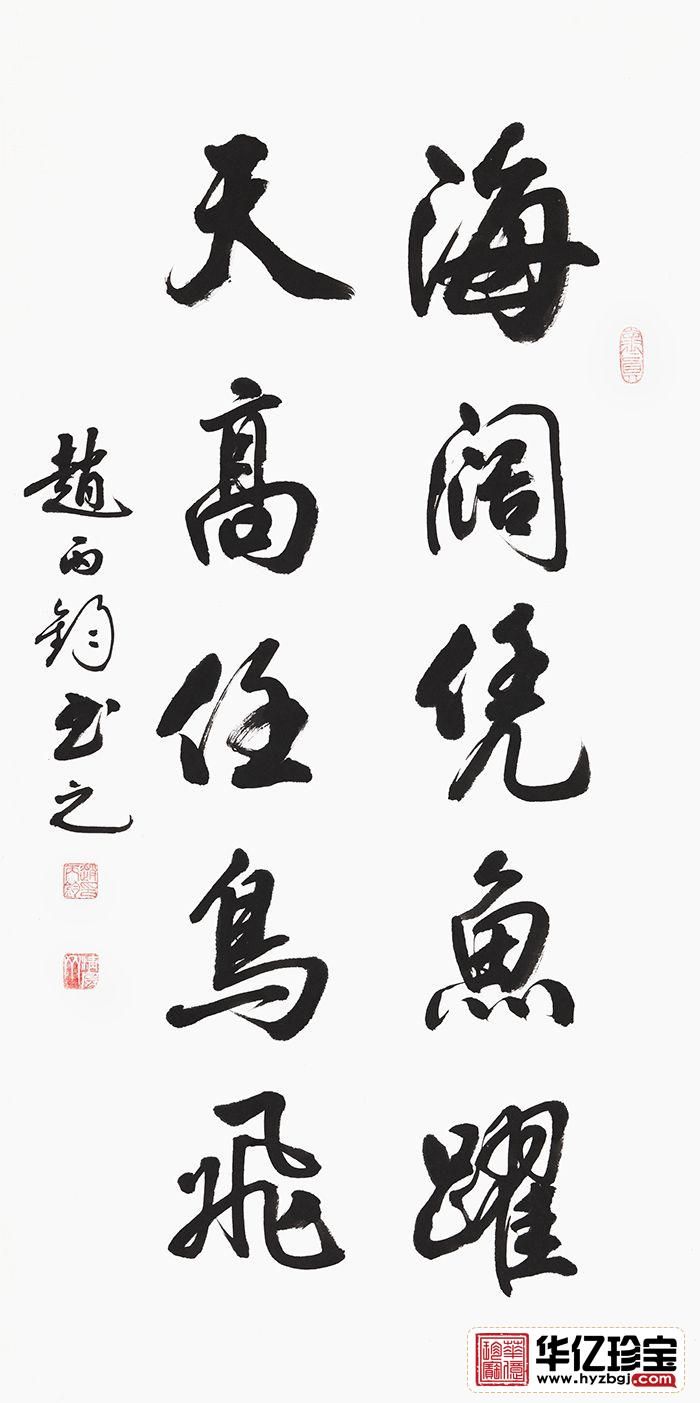 海阔凭魚躍
天高任鳥飛
趙丙鈞书之
华亿珍宝
www.hyzbgj.com